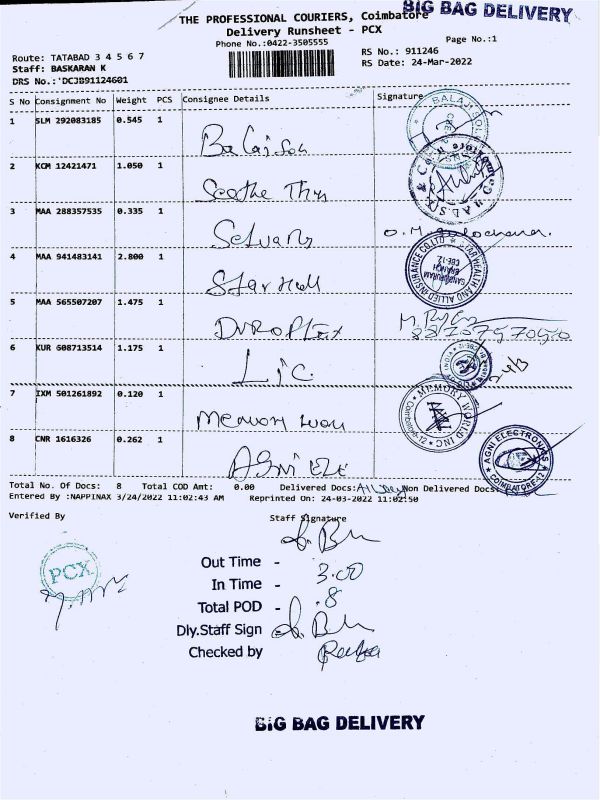 BIG BAG DELIVERY
THE PROFESSIONAL COURIERS, Coimbatore
Delivery Runsheet - PCX
Phone No.:0422-3505555
Page No.:1
Route: TATABAD 3 4 5 6 7
Staff: BASKARAN K
DRS No.:'DCJB91124601
RS No.: 911246
RS Date: 24-Mar-2022
S No Consignment No Weight PCS Consignee Details Signature
1 SLM 292083185 0.545 1
2 KCM 12421471 1.050 1
Seethe
3 MAA 288357535 0.335 1
Selvam
4 MAA 941483141 2.800 1
Star
STAR HEALTH AND ALLIED INSURANCE CO.LTD
5 MAA 565507207 1.475 1
DUROFLEX
6 KUR 608713514 1.175 1
LIC
7 IXM 501261892 0.120 1
Memory
MEMORY WORLD INC
Coimbatore-12
8 CNR 1616326 0.262 1
AGNI ELE
AGNI ELECTRONICS
COIMBATORE-12
Total No. Of Docs: 8 Total COD Amt: 0.00 Delivered Docs: Non Delivered Docs:
Entered By :NAPPINAX 3/24/2022 11:02:43 AM Reprinted On: 24-03-2022 11:02:50
Verified By
Staff Signature
PCX
Out Time -
In Time - 3.00
Total POD - 8
Dly.Staff Sign -
Checked by
BIG BAG DELIVERY